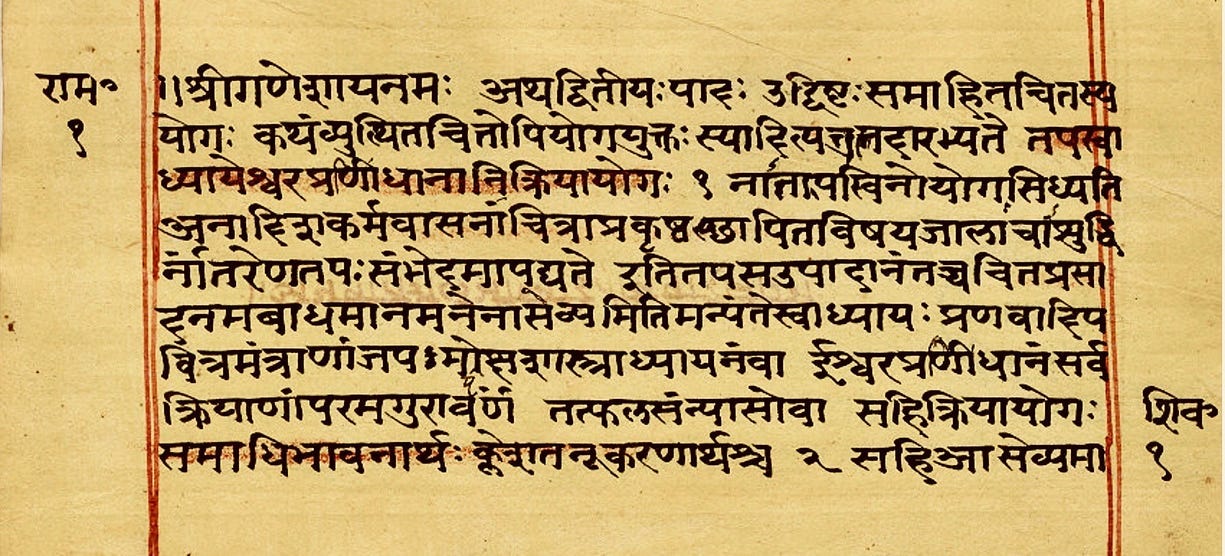 राम॰ ॥श्रीगणेशायनमः अथद्वितीयःपादः उद्दिष्टःसमाहितचितस्य
१ योगः कथंव्युत्थितचित्तोपियोगयुक्तःस्यादित्येतदारभ्यते तपस्वा
ध्यायेश्वरप्रणीधानानिक्रियायोगः १ नातपस्विनोयोगसिध्यति
अनादिक्लेशकर्मवासनाचित्राप्रकृष्ठापितविषयजालाचाशुद्धि
र्नातरेणतपःसंभेदमापद्यते इतितपसउपादानंतच्चचितप्रसा
दनमबाधमानमनेनासेव्यमितिमन्यंतेस्वाध्यायःप्रणवादिप
वित्रमंत्राणांजपःमोक्षशास्त्राध्यायनंवा ईश्वरप्रणीधानंसर्व
क्रियाणांपरमगुरार्वणं तत्फलसंन्यासोवा सहिक्रियायोगः शिव॰
समाधिभावनार्थःक्लेशतनूकरणार्थश्च २ सहिआसेव्यमा १